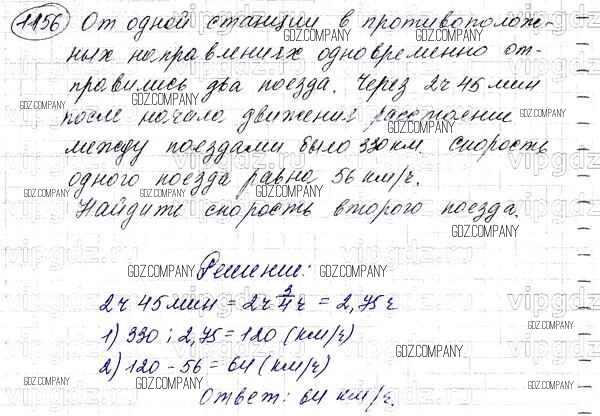 1156 От одной станции в противополож-
ных направлениях одновременно от-
правились два поезда. Через 2ч 45 мин
после начала движения расстояние
между поездами было 330 км. Скорость
одного поезда равна 56 км/ч.
Найдите скорость второго поезда.
Решение:
2ч 45 мин = 2ч 3/4 ч = 2,75 ч
1) 330 : 2,75 = 120 (км/ч)
2) 120 - 56 = 64 (км/ч)
Ответ: 64 км/ч.
GDZ.COMPANY
vipgdz.ru